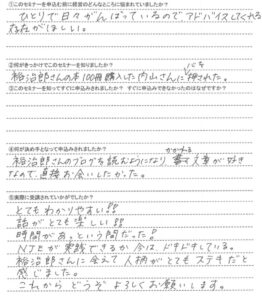 ①このセミナーを申込む前に経営のどんなところに悩まれていましたか？
ひとりで日々がんばっているのでアドバイスしてくれる
存在がほしい。
②何がきっかけでこのセミナーを知りましたか？
裕治郎さんの本100冊購入した内山さんに押された。
③このセミナーを知ってすぐに申込みされましたか？ すぐに申込みできなかったのはなぜですか？
④何が決め手となって申込みされましたか？
裕治郎さんのブログを読むようになり 書かれる文章が好き
なので、直接お会いしたかった。
⑤実際に受講されていかがでしたか？
とてもわかりやすい!!
話がとても楽しい!!
時間があっという間だった!
NTEが実践できるか今はドキドキしている。
裕治郎さんに会えて人柄がとてもステキだと
感じました。
これからどうぞよろしくお願いします。